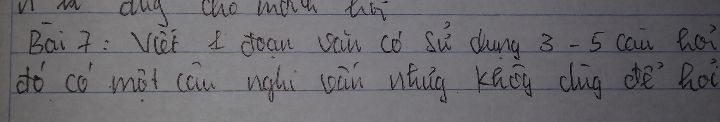 dụg cho mđích hỏi
Bài 7: Viết 1 đoạn văn có sử dụng 3 - 5 câu hỏi
đó có một câu nghi vấn nhưg khôg dùg để hỏi